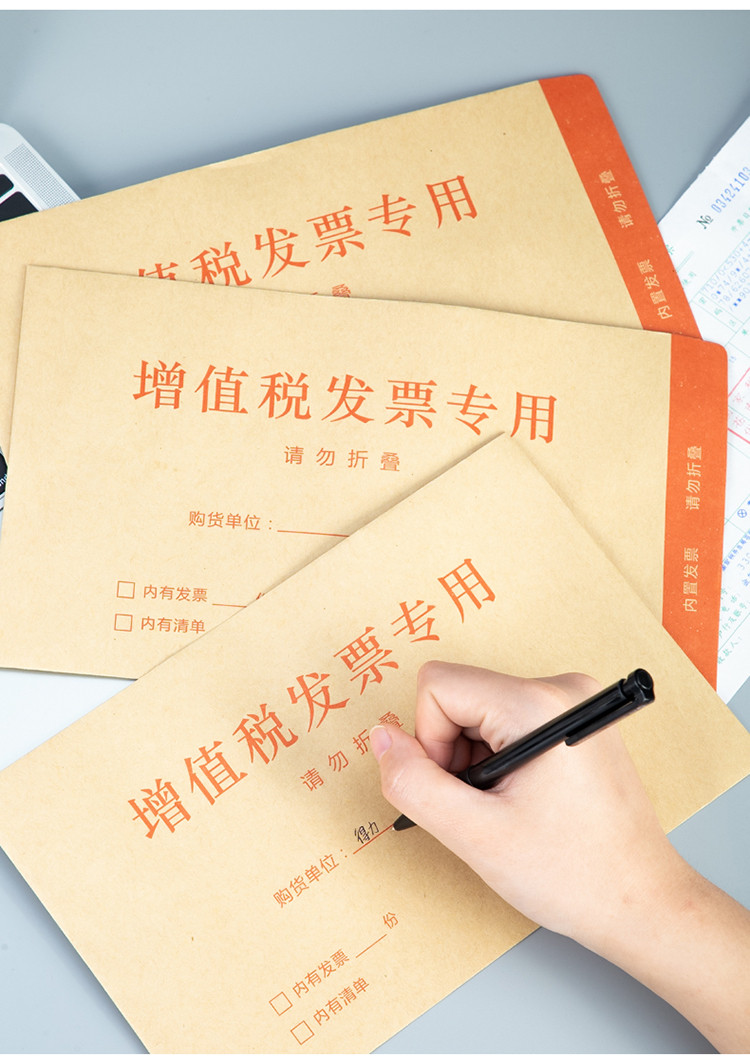 增值税发票专用
请勿折叠
内置发票
增值税发票专用
请勿折叠
购货单位：
内有发票
内有清单
请勿折叠
内置发票
增值税发票专用
请勿折叠
购货单位：得力
内有发票 份
内有清单
№ 03424103